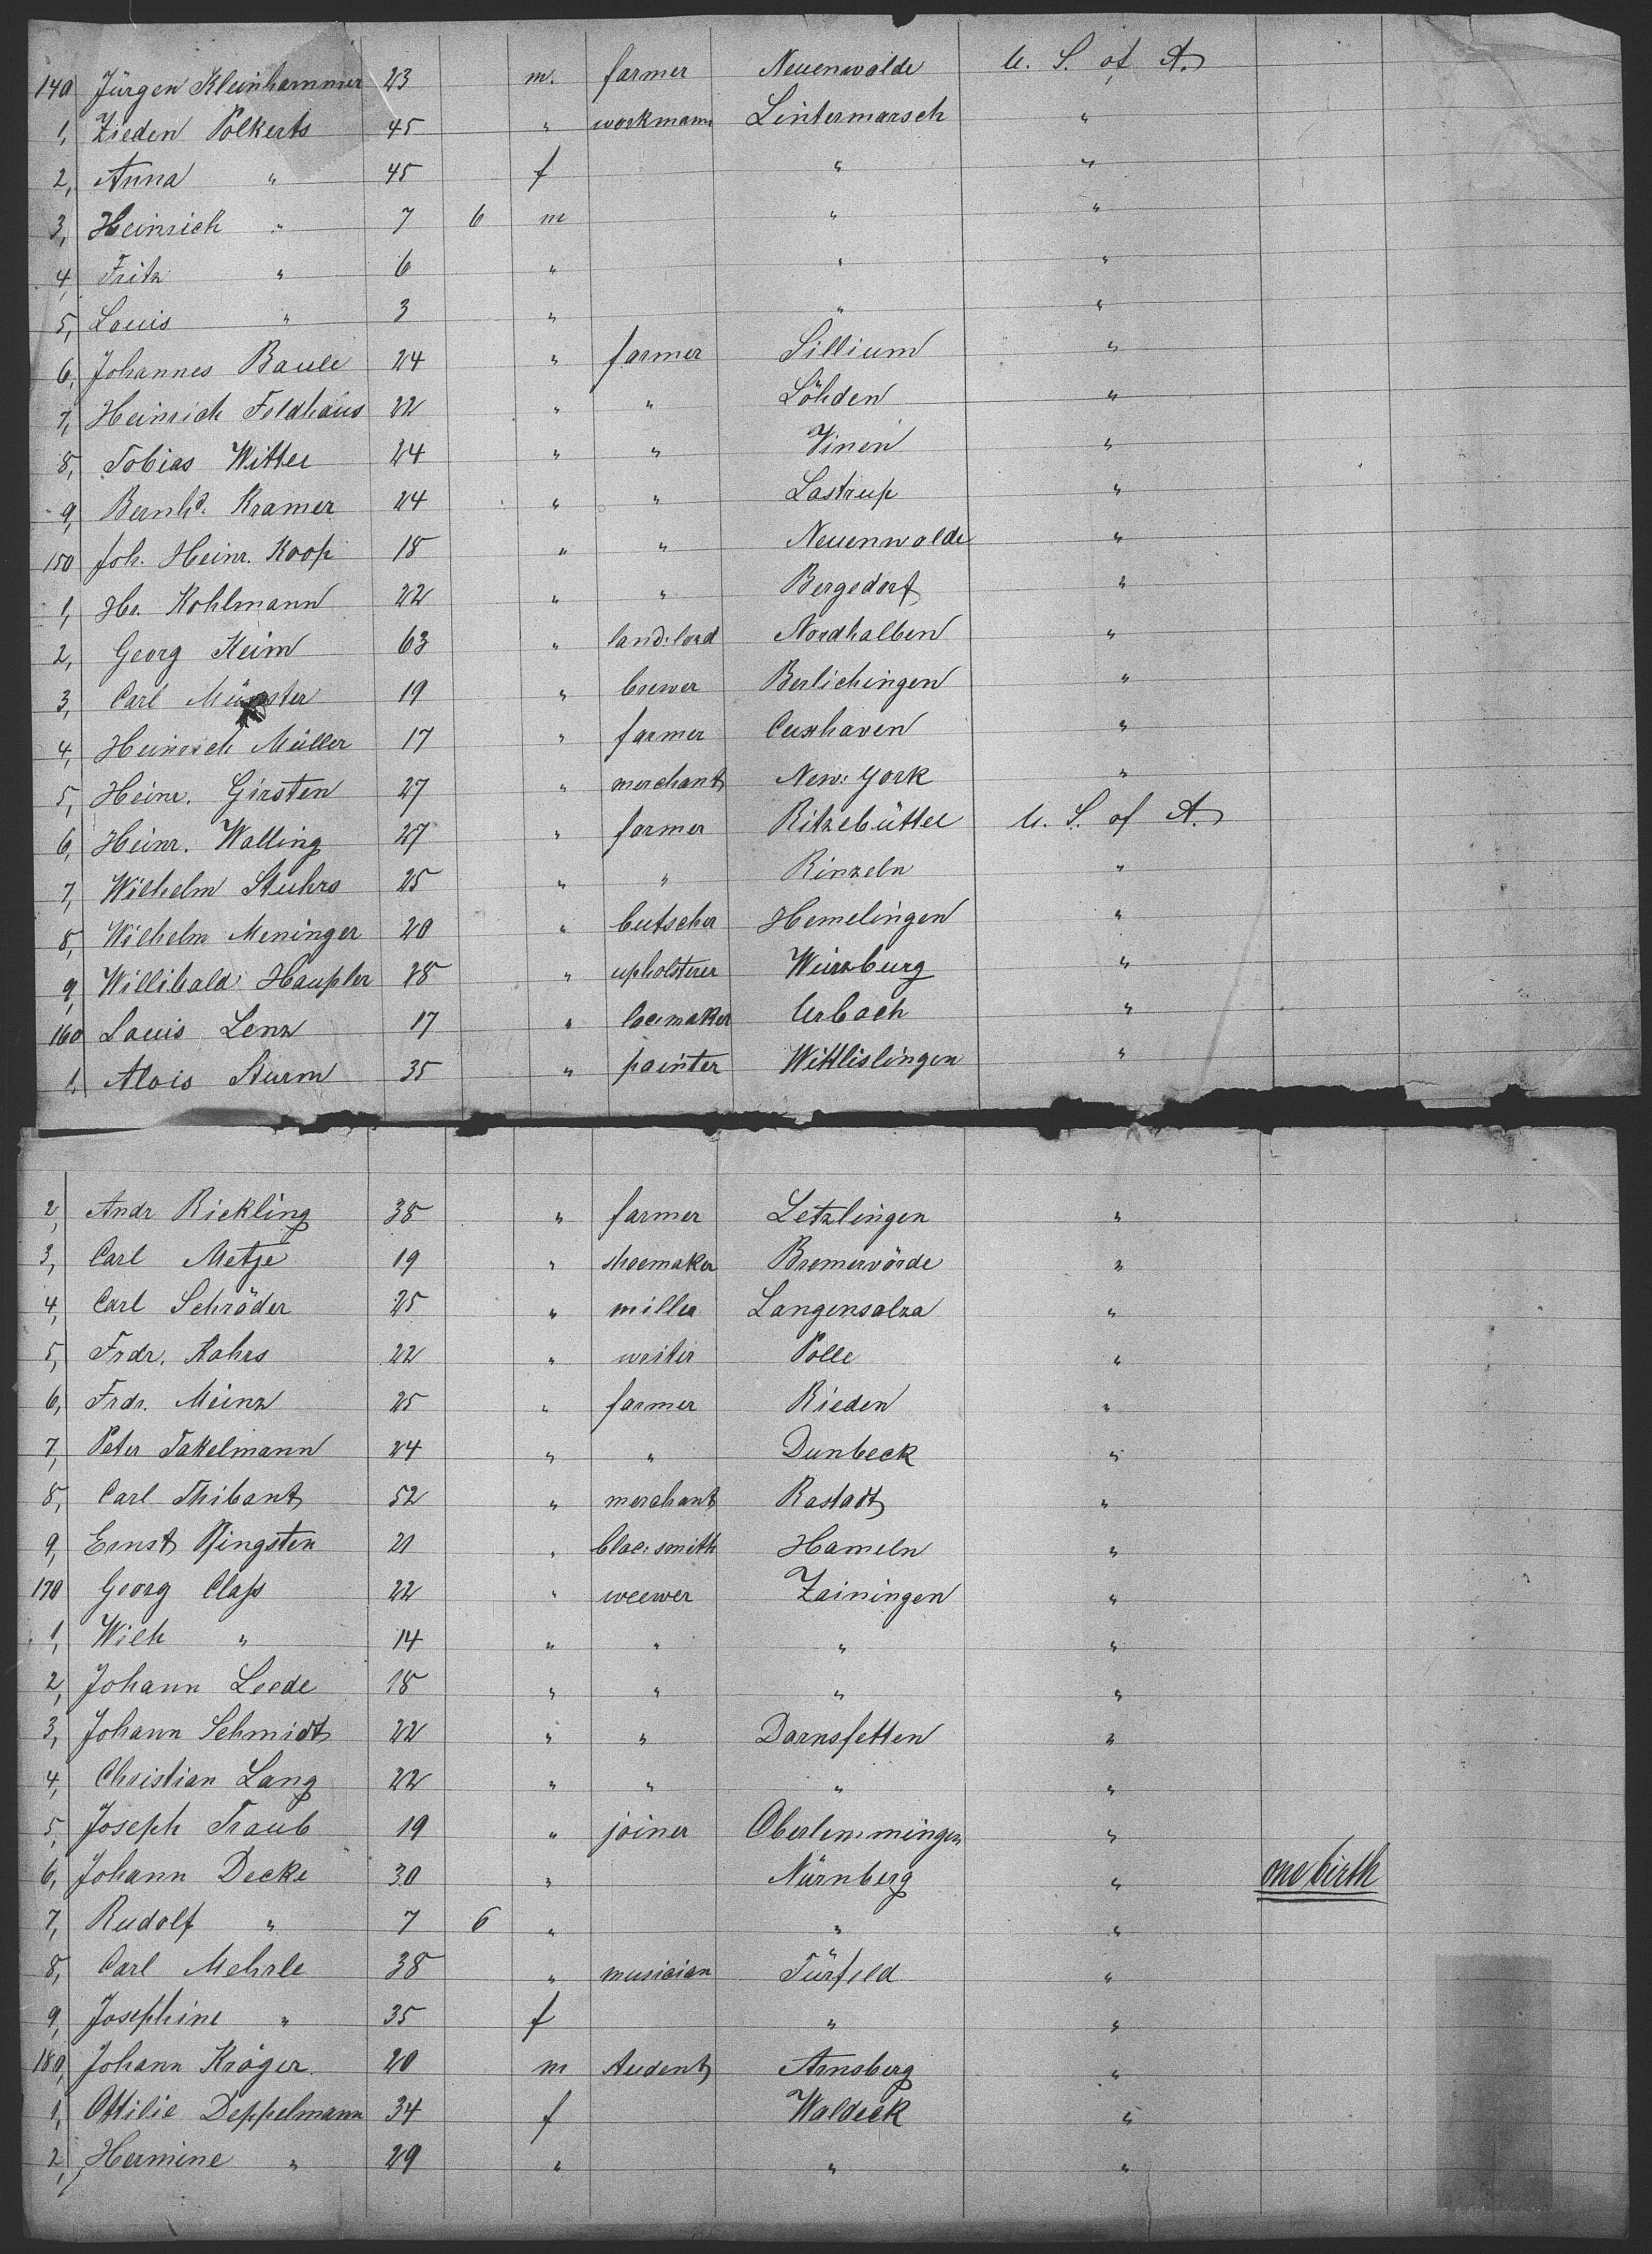 140 Jürgen Kleinhammer 23 m. farmer Neuenwalde U. S. of A.
1, Zieden Polkerts 45 " workmann Lintermarsch "
2, Anna " 45 f " "
3, Heinrich " 7 6 m " "
4, Fritz " 6 " " "
5, Louis " 3 " " "
6, Johannes Baule 24 " farmer Sillium "
7, Heinrich Feldhaus 22 " " Löhden "
8, Tobias Witte 24 " " Vinen "
9, Bernhd. Kramer 24 " " Lastrup "
150 Joh. Heinr. Koop 18 " " Neuenwalde "
1, Hr. Kohlmann 22 " " Bergedorf "
2, Georg Keim 63 " land:lord Nordhalben "
3, Carl Münster 19 " brewer Berlichingen "
4, Heinrich Müller 17 " farmer Cuxhaven "
5, Heinr. Girsten 27 " merchant New: York "
6, Heinr. Walling 27 " farmer Ritzebüttel U. S. of A.
7, Wilhelm Stuhrs 25 " " Rinzeln "
8, Wilhelm Meninger 20 " butscher Hemelingen "
9, Willibald Haupler 28 " upholsterer Würzburg "
160 Louis Lenz 17 " Urbach "
1, Alois Sturm 35 " painter Wittlislingen "
2, Andr Rickling 38 " farmer Letzlingen "
3, Carl Metje 19 " shoemaker Bremervörde "
4, Carl Schröder 25 " miller Langensalza "
5, Frdr. Kahrs 22 " writer Polle "
6, Frdr. Meinz 25 " farmer Rieden "
7, Peter Takelmann 24 " " Dunbeck "
8, Carl Thibant 52 " merchant Rastadt "
9, Ernst Pfingsten 21 " blac:smith Hameln "
170 Georg Claß 22 " weewer Zainingen "
1, Wilh " 14 " " " "
2, Johann Leede 18 " " " "
3, Johann Schmidt 22 " " Darnsfetten "
4, Christian Lang 22 " " " "
5, Joseph Traub 19 " joiner Oberlemmingen "
6, Johann Decke 30 " Nürnberg " one birth
7, Rudolf " 7 6 " " "
8, Carl Mehrle 38 " musician Fürfeld "
9, Josephine " 35 f " "
180, Johann Kröger 20 m student Arnsberg "
1, Ottilie Deppelmann 34 f Waldeck "
2, Hermine " 29 " " "